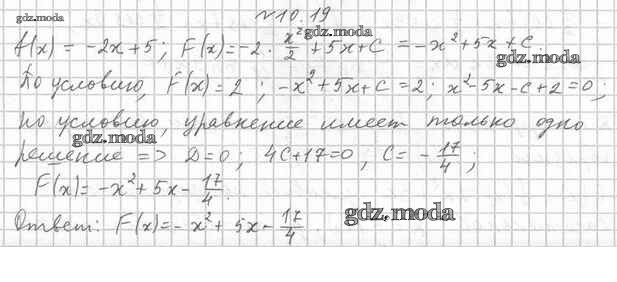 №10.19
gdz.moda
gdz.moda
f(x) = -2x+5; F(x)=-2·x²/2+5x+C = -x²+5x+C.
gdz.moda
По условию, F(x)=2; -x²+5x+C=2; x²-5x-C+2=0;
по условию, уравнение имеет только одно
gdz.moda
решение => D=0; 4C+17=0, C=-17/4;
F(x)=-x²+5x-17/4.
Ответ: F(x)=-x²+5x-17/4.
gdz.moda